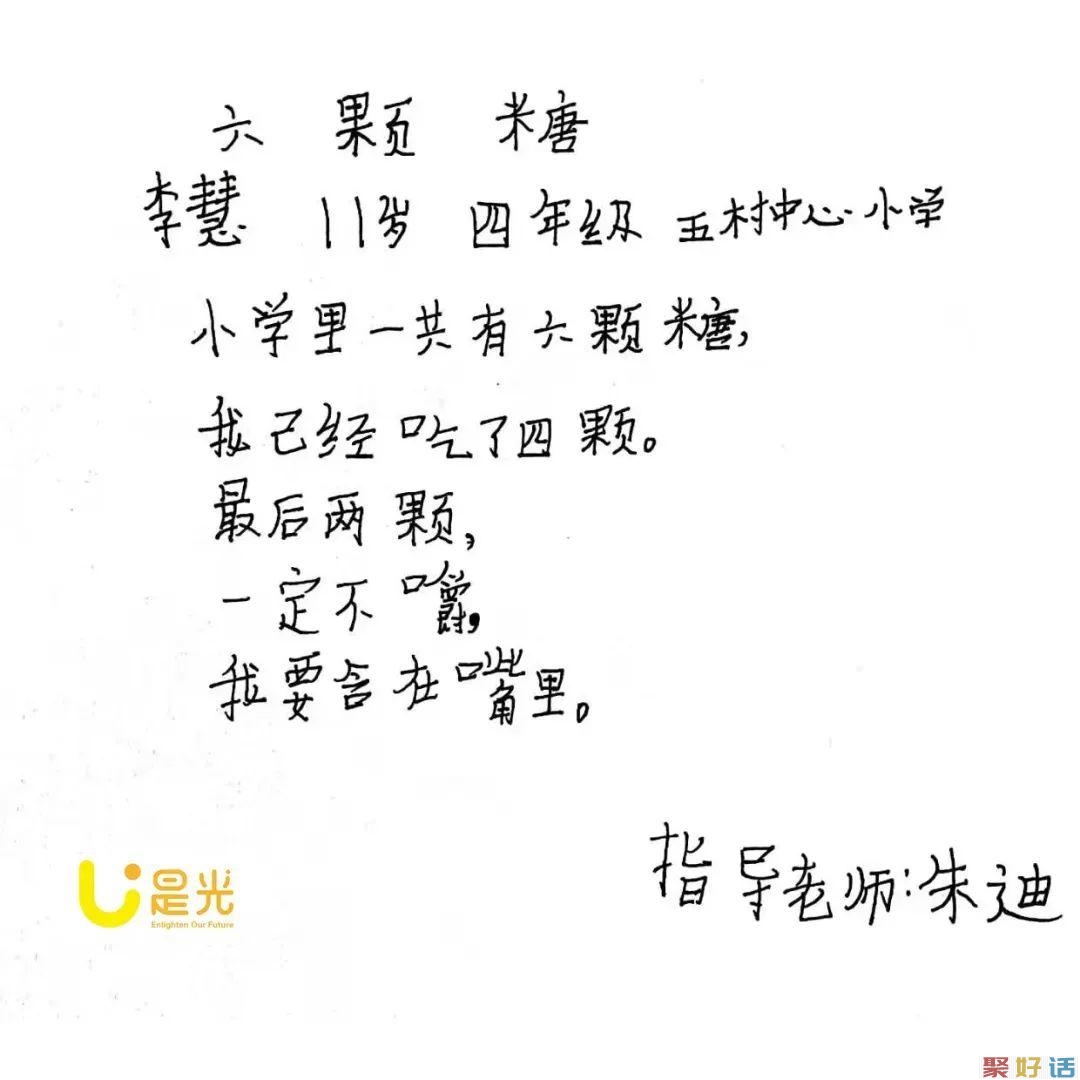 六 颗 糖
李慧 11岁 四年级 五村中心小学
小学里一共有六颗糖,
我已经吃了四颗。
最后两颗,
一定不嚼,
我要含在嘴里。
指导老师:朱迪
是光
Enlighten Our Future
聚好话